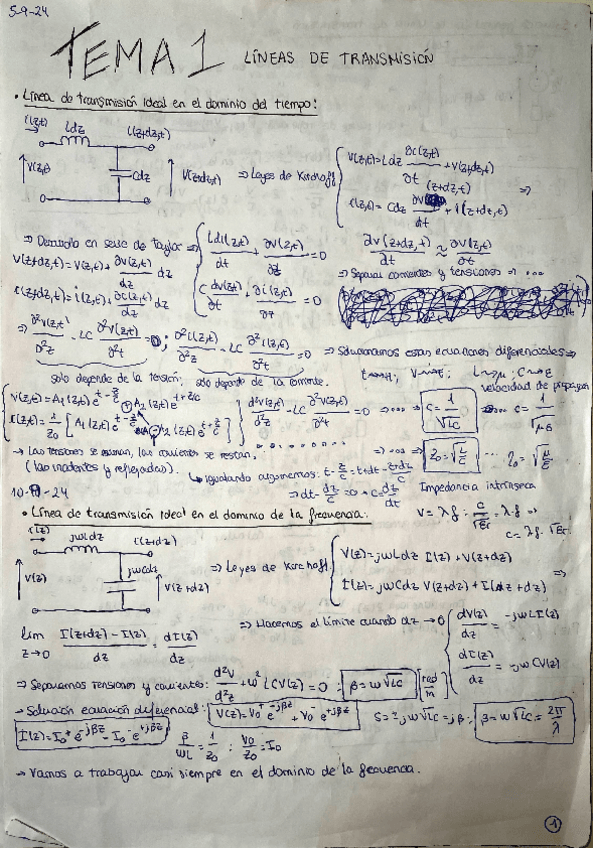 5-9-24
TEMA 1 LÍNEAS DE TRANSMISIÓN
• Línea de transmisión ideal en el dominio del tiempo:
i(z,t) Ldz i(z+dz,t)
V(z,t) Cdz V(z+dz,t) ⇒ Leyes de Kirchoff
V(z,t)=Ldz ∂i(z,t)/∂t + V(z+dz,t)
i(z,t)= Cdz ∂V(z+dz,t)/∂t + i(z+dz,t) ⇒
⇒ Desarrollo en serie de Taylor ⇒
V(z+dz,t)=V(z,t)+ ∂V(z,t)/dz dz
i(z+dz,t)=i(z,t)+ ∂i(z,t)/dz dz
L di(z,t)/dt + ∂V(z,t)/∂z = 0
C dv(z,t)/dt + ∂i(z,t)/∂z = 0
∂v(z+dz,t)/dt ≈ ∂V(z,t)/∂t
⇒ Separar corrientes y tensiones ⇒ ...
⇒ ∂²V(z,t)/∂²z - LC ∂²V(z,t)/∂²t = 0; ∂²i(z,t)/∂²z - LC ∂²i(z,t)/∂²t = 0 ⇒ Solucionamos estas ecuaciones diferenciales ⇒
solo depende de la tensión; solo depende de la corriente.
velocidad de propagación
V(z,t)=A₁(z,t)e^(t-z/c) + A₂(z,t)e^(t+z/c)
i(z,t)= 1/Z₀ [A₁(z,t)e^(t-z/c) - A₂(z,t)e^(t+z/c)]
d²V/d²z - LC ∂²V/∂²t = 0 ⇒ ... ⇒ C = 1/√LC c = 1/√με
→ Las tensiones se suman, las corrientes se restan. ⇒ Z₀=√L/C Z₀ = √μ/ε
(las incidentes y reflejadas). ↳ igualando argumentos: t - z/c = t+dt - z+dz/c Impedancia intrínseca
⇒ dt - dz/c = 0 ⇒ c = dz/dt
V = λf ; c/√εr = λf ⇒
c = λf · √εr
10-9-24
• Línea de transmisión ideal en el dominio de la frecuencia:
I(z) jωLdz I(z+dz)
V(z) jωCdz V(z+dz) ⇒ Leyes de Kirchoff
V(z)=jωLdz I(z)+V(z+dz)
I(z)=jωCdz V(z+dz)+I(dz+dz) ⇒
lim z→0 I(z+dz) - I(z)/dz = dI(z)/dz ⇒ Hacemos el límite cuando dz → 0
dV(z)/dz = -jωLI(z)
dI(z)/dz = -jωCV(z)
⇒ Separamos Tensiones y corrientes: d²V/d²z + ω²LCV(z)=0 ; β=ω√LC [rad/m]
→ Solución ecuación diferencial: V(z)=V₀⁺e^-jβz + V₀⁻e^+jβz S=±jω√LC=jβ ; β=ω√LC = 2π/λ
I(z)=I₀⁺e^-jβz - I₀⁻e^+jβz β/ωL = 1/Z₀ ; V₀/Z₀ = I₀
→ Vamos a trabajar casi siempre en el dominio de la frecuencia.
1